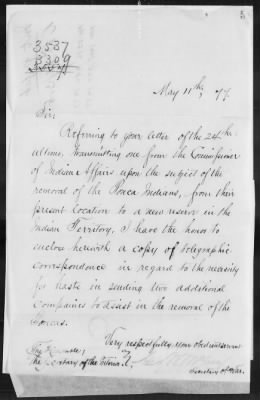 3537
3309
May 11th, 77.
Sir:
Referring to your letter of the 24th
ultimo, transmitting one from the Commissioner
of Indian Affairs upon the subject of the
removal of the Ponca Indians, from their
present location to a new reserve in the
Indian Territory, I have the honor to
enclose herewith a copy of telegraphic
correspondence in regard to the necessity
for haste in sending two additional
Companies to assist in the removal of the
Poncas.
Very respectfully your obedient servant
The Honorable
The Secretary of the Interior
Secretary of War.